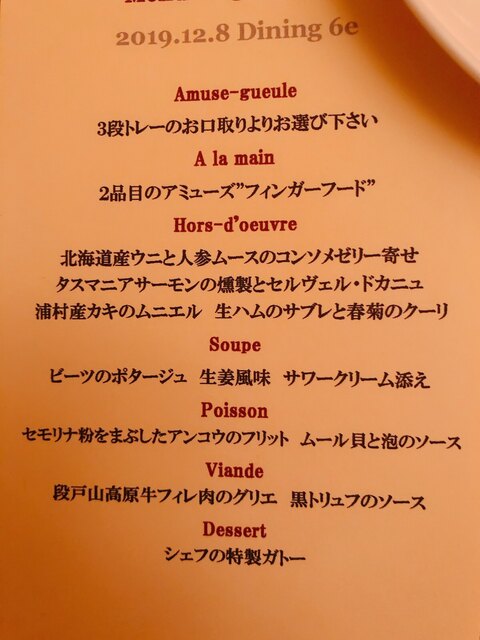 2019.12.8 Dining 6e
Amuse-gueule
3段トレーのお口取りよりお選び下さい
A la main
2品目のアミューズ”フィンガーフード”
Hors-d'oeuvre
北海道産ウニと人参ムースのコンソメゼリー寄せ
タスマニアサーモンの燻製とセルヴェル・ドカニュ
浦村産カキのムニエル 生ハムのサブレと春菊のクーリ
Soupe
ビーツのポタージュ 生姜風味 サワークリーム添え
Poisson
セモリナ粉をまぶしたアンコウのフリット ムール貝と泡のソース
Viande
段戸山高原牛フィレ肉のグリエ 黒トリュフのソース
Dessert
シェフの特製ガトー